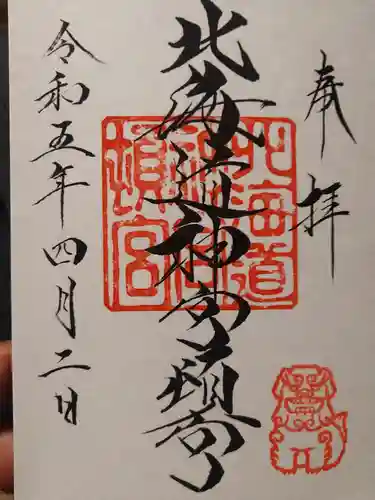 奉拝
北海道神宮頓宮
北海道
神宮
頓宮
令和五年四月二日